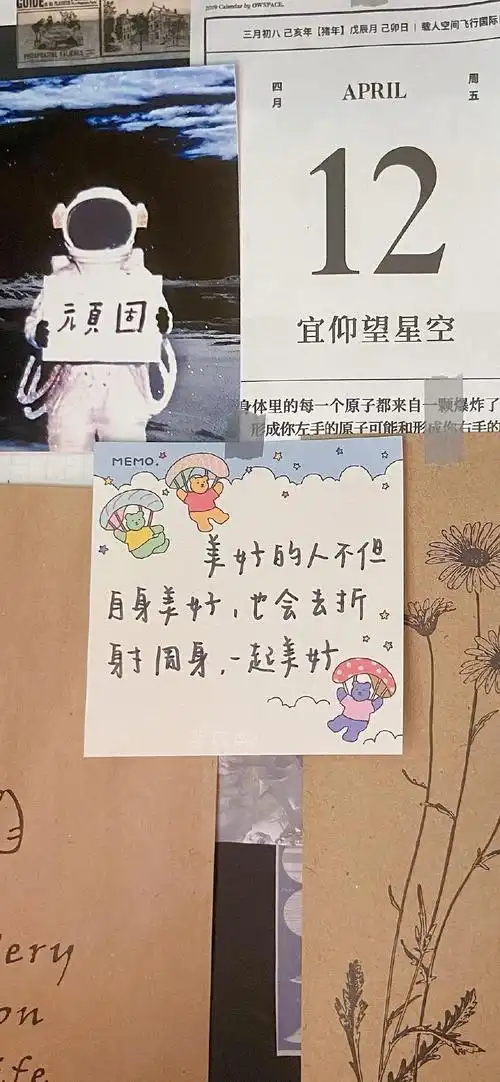 GUIDE
2019 Calendar by OWSPACE.
三月初八 己亥年【猪年】戊辰月 己卯日 | 载人空间飞行国际
四月
APRIL
周五
12
宜仰望星空
身体里的每一个原子都来自一颗爆炸了
形成你左手的原子可能和形成你右手的
頑固
MEMO.
美好的人不但
自身美好，也会去折
射周身，一起美好
ery
on
ife